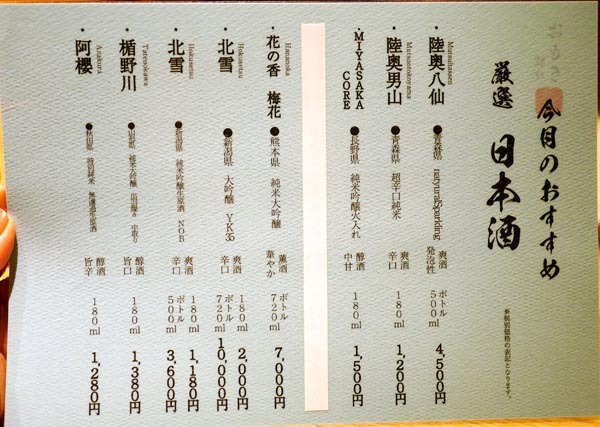 今月のおすすめ
厳選 日本酒
※税別価格の表記となります。
Mutsuhassen
・陸奥八仙
●青森県 natyulal Sparkling
爽酒
発泡性
ボトル
500ml
4,500円
Mutsuotokoyama
・陸奥男山
●青森県 超辛口純米
爽酒
辛口
180ml
1,200円
・MIYASAKA
CORE
●長野県 純米吟醸火入れ
醇酒
中甘
180ml
1,500円
Hananoka
・花の香 梅花
●熊本県 純米大吟醸
薫酒
華やか
ボトル
720ml
7,000円
Hokusetsu
・北雪
●新潟県 大吟醸 YK35
爽酒
辛口
180ml
2,000円
ボトル
720ml
10,000円
Hokusetsu
・北雪
●新潟県 純米吟醸生原酒 NOB
爽酒
辛口
180ml
1,180円
ボトル
500ml
3,600円
Tatenokawa
・楯野川
●山形県 純米大吟醸 出羽燦々 中取り
醇酒
旨口
180ml
1,380円
Azakura
・阿櫻
●秋田県 特別純米 無濾過生原酒
醇酒
旨辛
180ml
1,280円